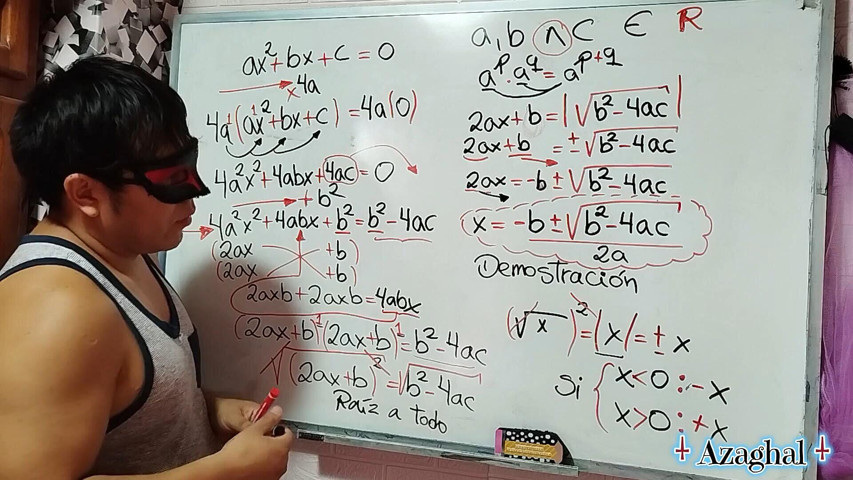 ax²+bx+c=0
x4a
4a(ax²+bx+c)=4a(0)
4a²x²+4abx+4ac=0
+b²
4a²x²+4abx+b²=b²-4ac
(2ax +b)
(2ax +b)
2axb+2axb=4abx
(2ax+b)¹(2ax+b)¹=b²-4ac
√(2ax+b)²=√b²-4ac
Raíz a todo
a,b ∧ C ∈ R
aᵖ·a^q=a^p+q
2ax+b=|√b²-4ac|
2ax+b=±√b²-4ac
2ax=-b±√b²-4ac
x=-b±√b²-4ac
2a
Demostración
(√x)²=|x|=±x
Si { x<0:-x
x>0:+x
Azaghal